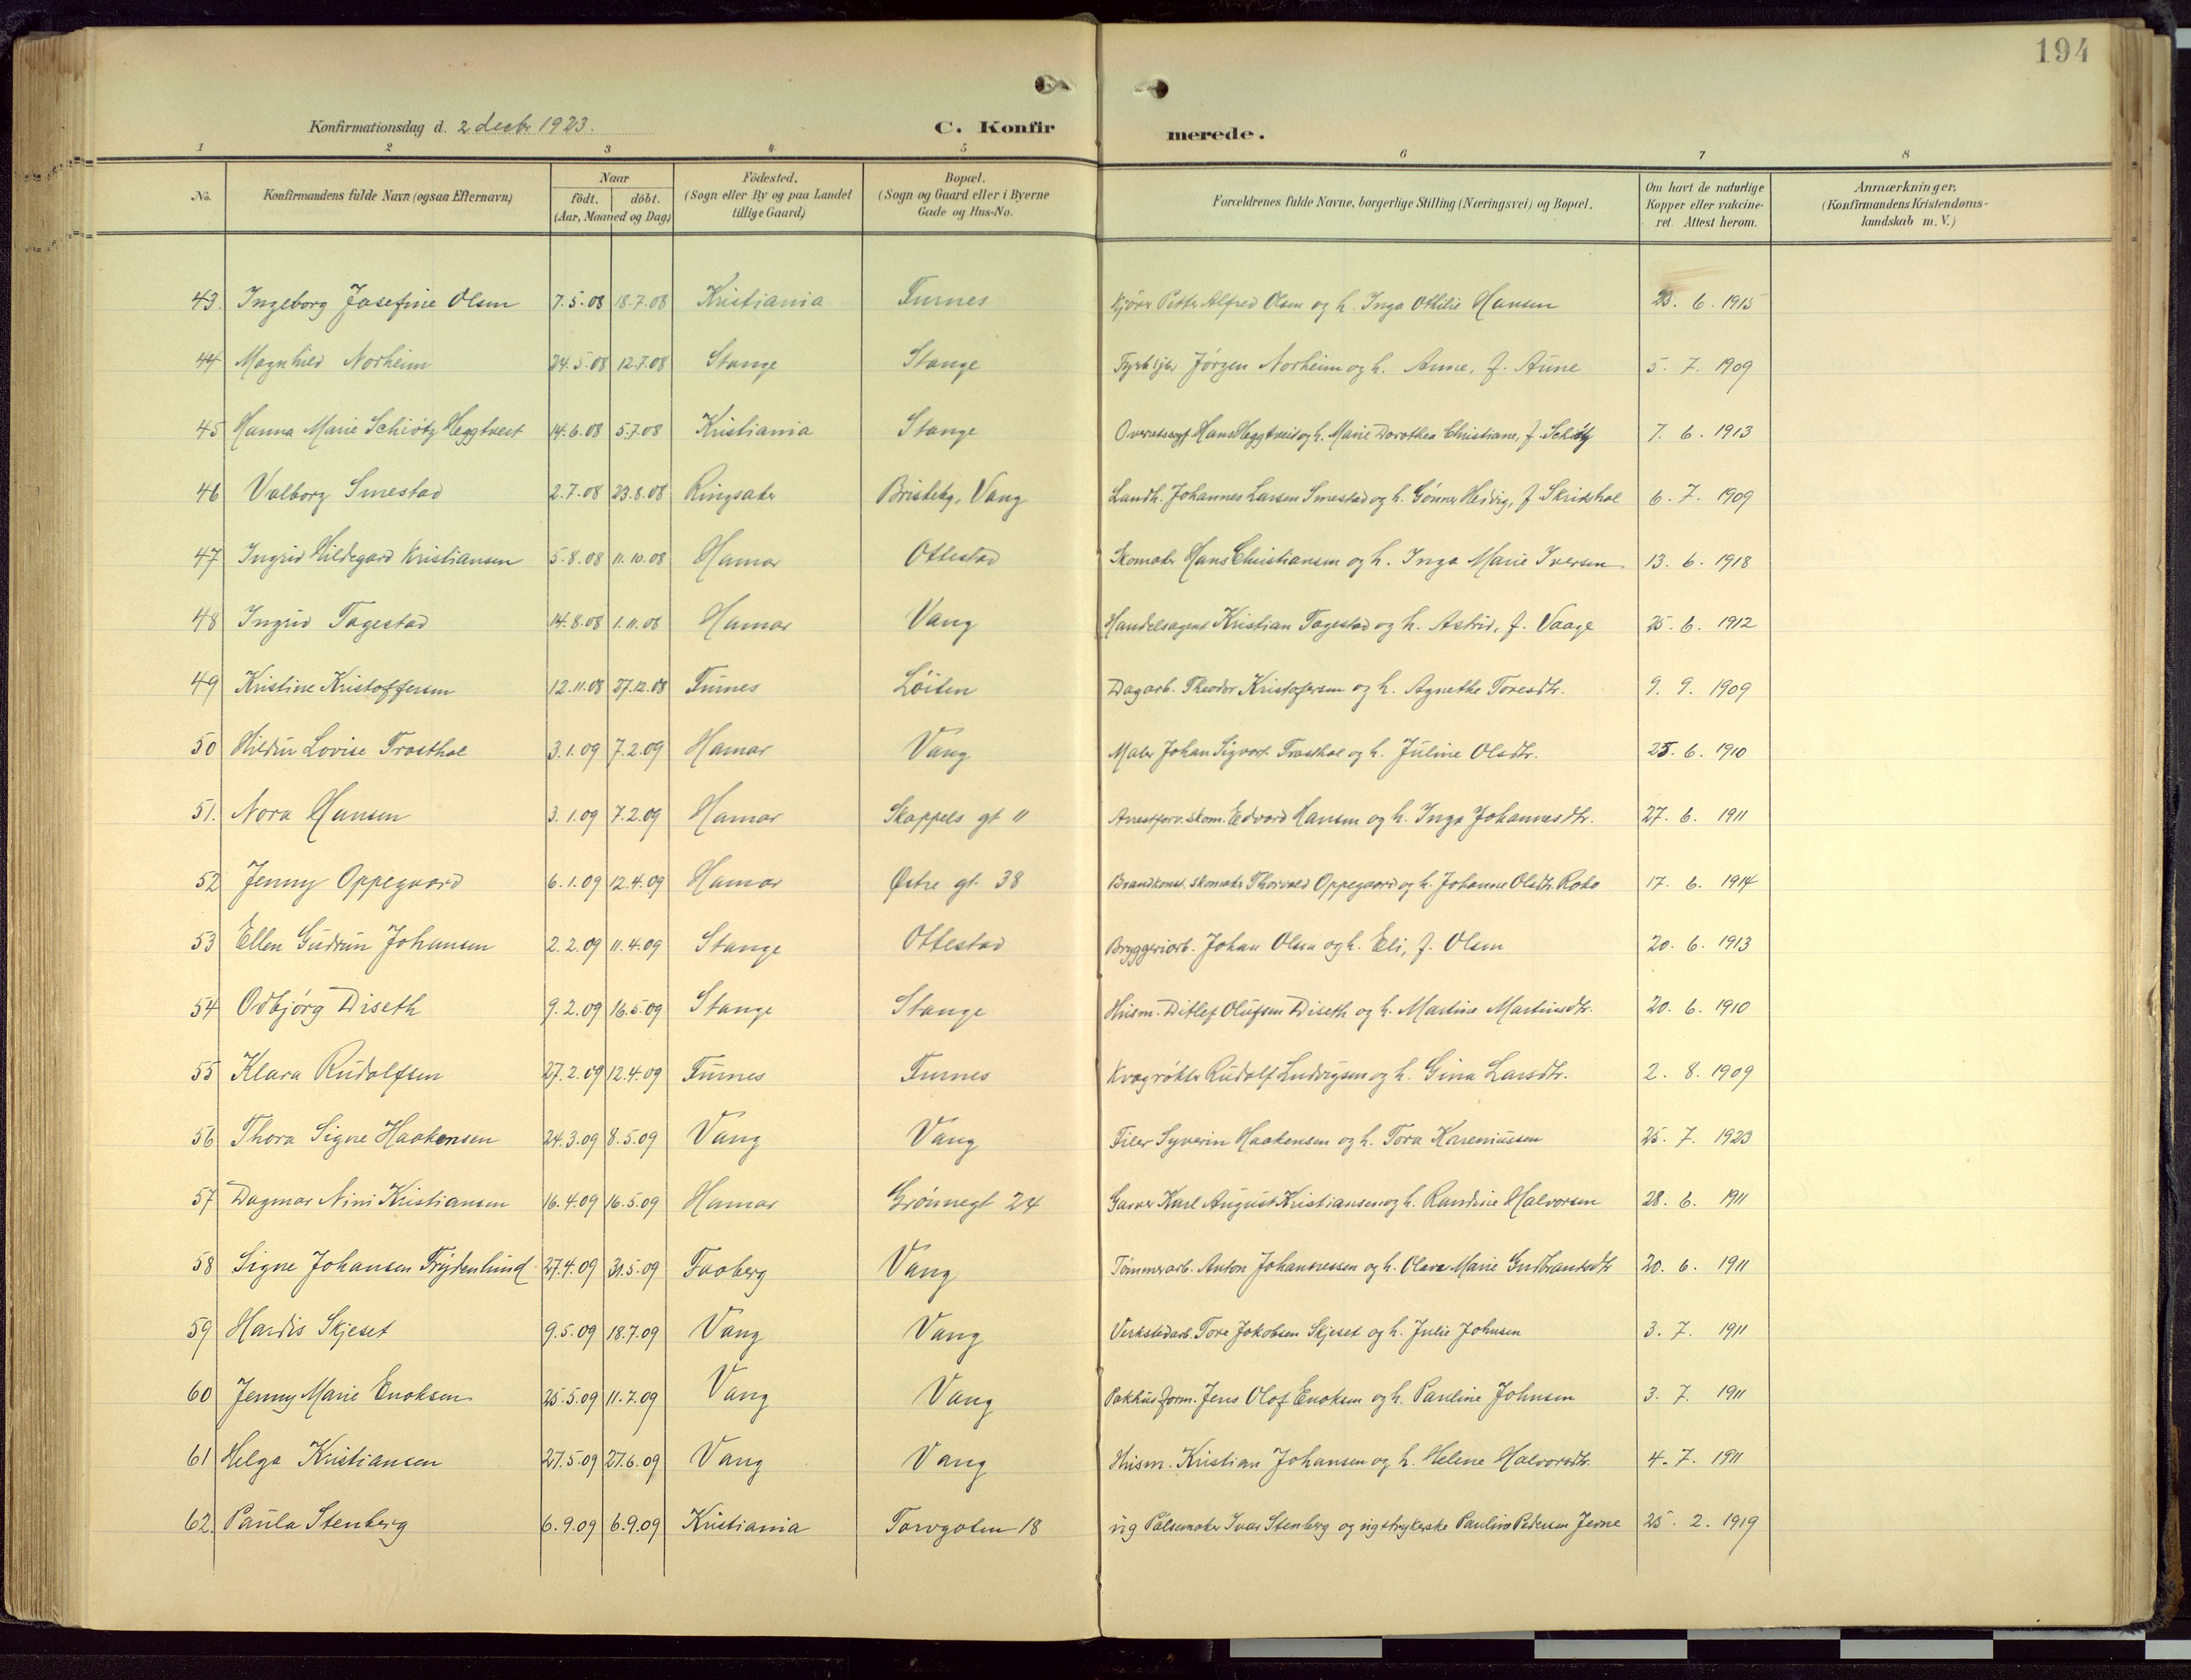 194
Konfirmationsdag d. 2 decbr 1923.
C. Konfirmerede.
1 2 3 4 5 6 7 8
No. Konfirmandens fulde Navn (ogsaa Efternavn) Naar födt. döbt. (Aar, Maaned og Dag) Födested. (Sogn eller By og paa Landet tillige Gaard) Bopæl. (Sogn og Gaard eller i Byerne Gade og Hus-No. Forældrenes fulde Navne, borgerlige Stilling (Næringsvei) og Bopæl. Om havt de naturlige Kopper eller vakcineret. Attest herom. Anmærkninger. (Konfirmandens Kristendomskundskab m. V.)
43. Ingeborg Josefine Olsen 7.5.08 18.7.08 Kristiania Furnes Kjører Petter Alfred Olsen og h. Inga Othilie Hansen 23. 6. 1915
44 Magnhild Norheim 24.5.08 12.7.08 Stange Stange Jørgen Norheim og h. Anne, f. Aune 5. 7. 1909
45 Hanna Marie Schiøtz Heggtveit 14.6.08 5.7.08 Kristiania Stange Overretssagf. Hans Heggtveit og h. Marie Dorothea Christiane, f. Schiøtz 7. 6. 1913
46 Valborg Smestad 2.7.08 23.8.08 Ringsaker Bristeby, Vang Landh. Johannes Larsen Smestad og h. Gunner Hedvig, f Skridshol 6. 7. 1909
47 Ingrid Hildegard Kristiansen 5.8.08 11.10.08 Hamar Ottestad Skomaker Hans Christiansen og h. Inga Marie Iversen 13. 6. 1918
48 Ingrid Tagestad 14.8.08 1.11.08 Hamar Vang Handelsagent Kristian Tagestad og h. Astrid, f. Vaage 25. 6. 1912
49 Kristine Kristoffersen 12.11.08 27.12.08 Furnes Löiten Dagarb. Theodor Kristofersen og h. Agnethe Toresdtr. 9. 9. 1909
50 Hildur Lovise Frosthol 3.1.09 7.2.09 Hamar Vang Maler Johan Sigvart Frosthol og h. Juline Olsdtr. 25. 6. 1910
51. Nora Hansen 3.1.09 7.2.09 Hamar Skappels gt 11 Arrestforv. skom. Edvard Hansen og h. Inga Johannesdtr. 27. 6. 1911
52 Jenny Oppegaard 6.1.09 12.4.09 Hamar Østre gt. 38 Brandkonst. skomaker Thorvald Oppegaard og h. Johanne Olsdtr. Roko 17. 6. 1914
53 Ellen Gudrun Johansen 2.2.09 11.4.09 Stange Ottestad Bryggeriarb. Johan Olsen og h. Eli, f. Olsen 20. 6. 1913
54 Odbjørg Diseth 9.2.09 16.5.09 Stange Stange Husm. Ditlef Olufsen Diseth og h. Martine Martinsdtr. 20. 6. 1910
55 Klara Rudolfsen 27.2.09 12.4.09 Furnes Furnes Kvægrøkter Rudolf Ludvigsen og h. Gina Larsdtr. 2. 8. 1909
56 Thora Signe Haakensen 24.3.09 8.5.09 Vang Vang Filer Syverin Haakensen og h. Tora Kareniussen 25. 7. 1923
57 Dagmar Nini Kristiansen 16.4.09 16.5.09 Hamar Grønnegt 24 Garver Karl August Kristiansen og h. Randine Halvorsen 28. 6. 1911
58 Signe Johansen Frydenlund 27.4.09 31.5.09 Faaberg Vang Tømmerarb. Anton Johannessen og h. Olava Marie Gudbrandsdtr 20. 6. 1911
59 Hardis Skjeset 9.5.09 18.7.09 Vang Vang Verkstedarb. Tore Jakobsen Skjeset og h. Julie Johnsen 3. 7. 1911
60 Jenny Marie Enoksen 25.5.09 11.7.09 Vang Vang Pakhusform. Jens Olof Enoksen og h. Pauline Johnsen 3. 7. 1911
61 Helga Kristiansen 27.5.09 27.6.09 Vang Vang Husm. Kristian Johansen og h. Helene Halvorsdtr. 4. 7. 1911
62. Paula Stenberg 6.9.09 6.9.09 Kristiania Torvgaten 18 ug Pølsemaker Ivar Stenberg og ug strykerske Pauline Pedersen Jevne 25. 2. 1919